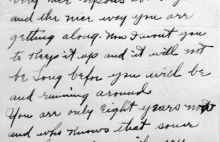 very nice
and the nice way you are
getting along. Now I want you
to keep it up and it will not
be long befor you will be
and running around
You are only Eight years now
and who knows that some